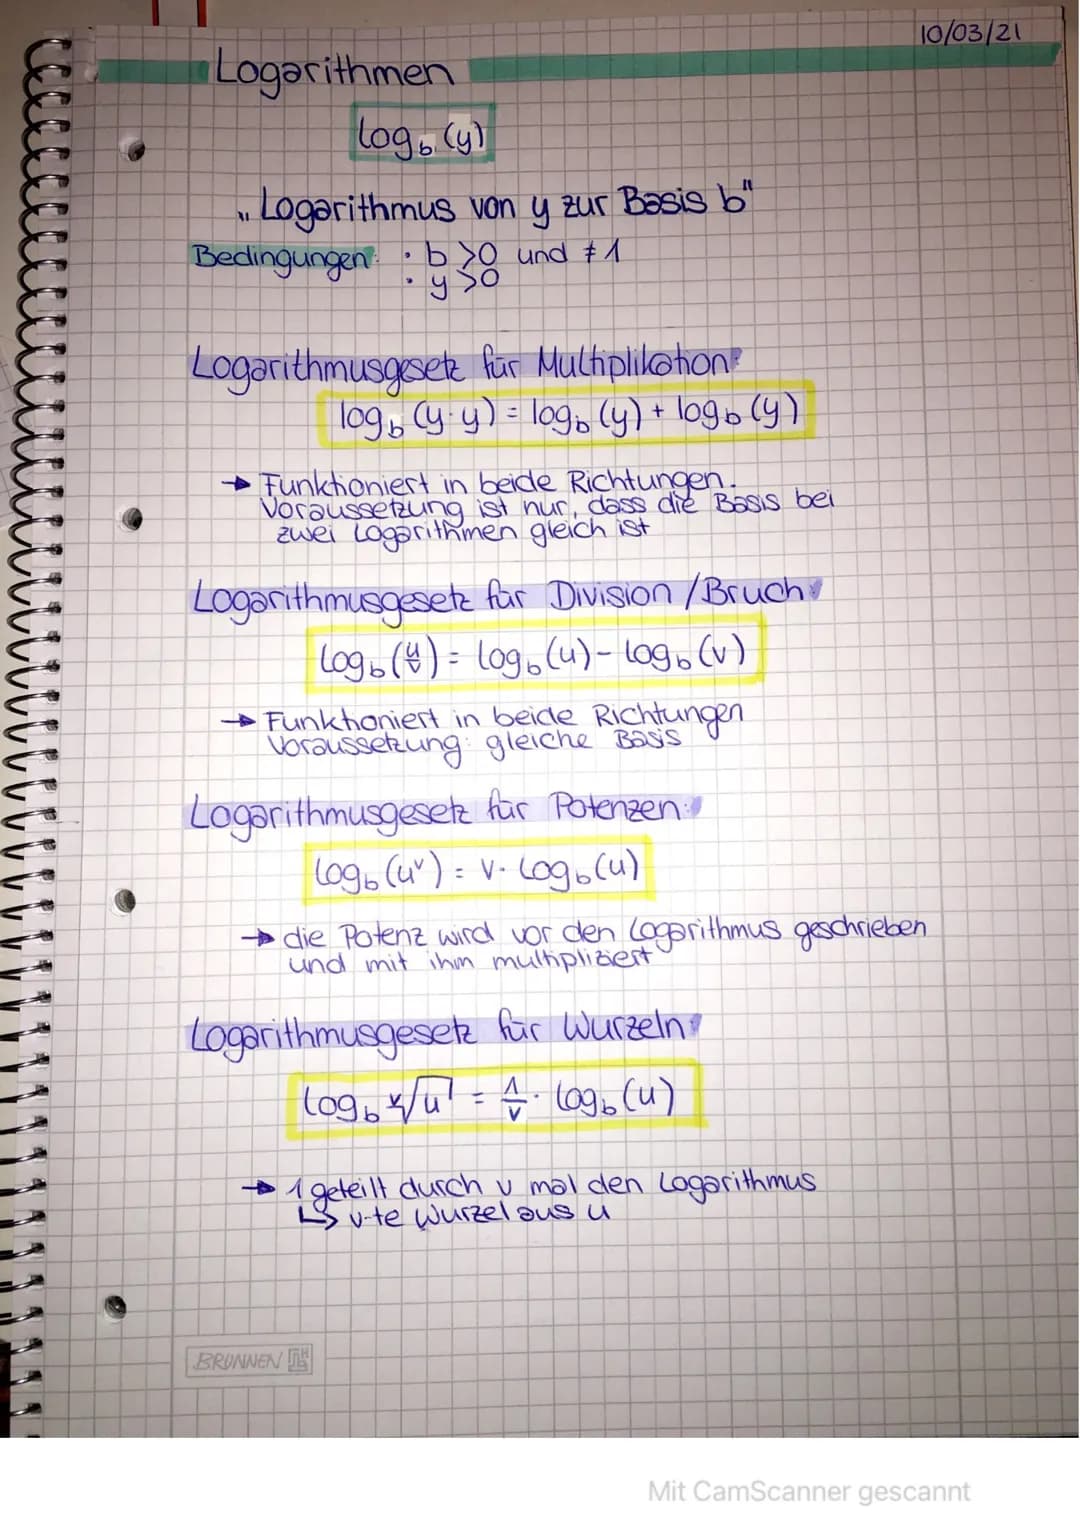 10/03/21
Logarithmen
log_b (y)
„Logarithmus von y zur Basis b"
Bedingungen: • b >0 und ≠ 1
• y >0
Logarithmusgesetz für Multiplikation:
log_b (y·y) = log_b (y) + log_b (y)
→ Funktioniert in beide Richtungen.
Voraussetzung ist nur, dass die Basis bei
zwei Logarithmen gleich ist
Logarithmusgesetz für Division / Bruch:
log_b (u/v) = log_b (u) - log_b (v)
→ Funktioniert in beide Richtungen
Voraussetzung: gleiche Basis
Logarithmusgesetz für Potenzen:
log_b (u^v) = v · log_b (u)
→ die Potenz wird vor den Logarithmus geschrieben
und mit ihm multipliziert
Logarithmusgesetz für Wurzeln:
log_b ᵛ√u = 1/v · log_b (u)
→ 1 geteilt durch v mal den Logarithmus
↳ v-te Wurzel aus u
BRUNNEN
Mit CamScanner gescannt